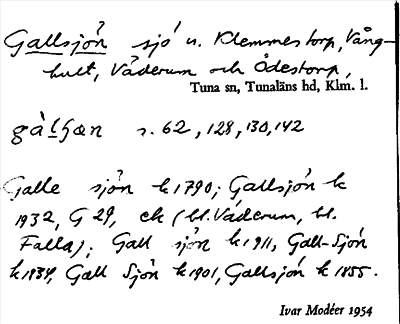 Gallsjön sjö n. Klemmestorp, Vång-
hult, Väderum och Ödestorp,
Tuna sn, Tunaläns hd, Klm. l.
s. 62, 128, 130, 142
Galle sjön k 1790; Gallsjön k
1932, G 29, ek (bl. Väderum, bl.
Falla); Gall sjön k 1911, Gall-Sjön
k 1934, Gall Sjön k 1901, Gallsjön k 1855.
Ivar Modéer 1954